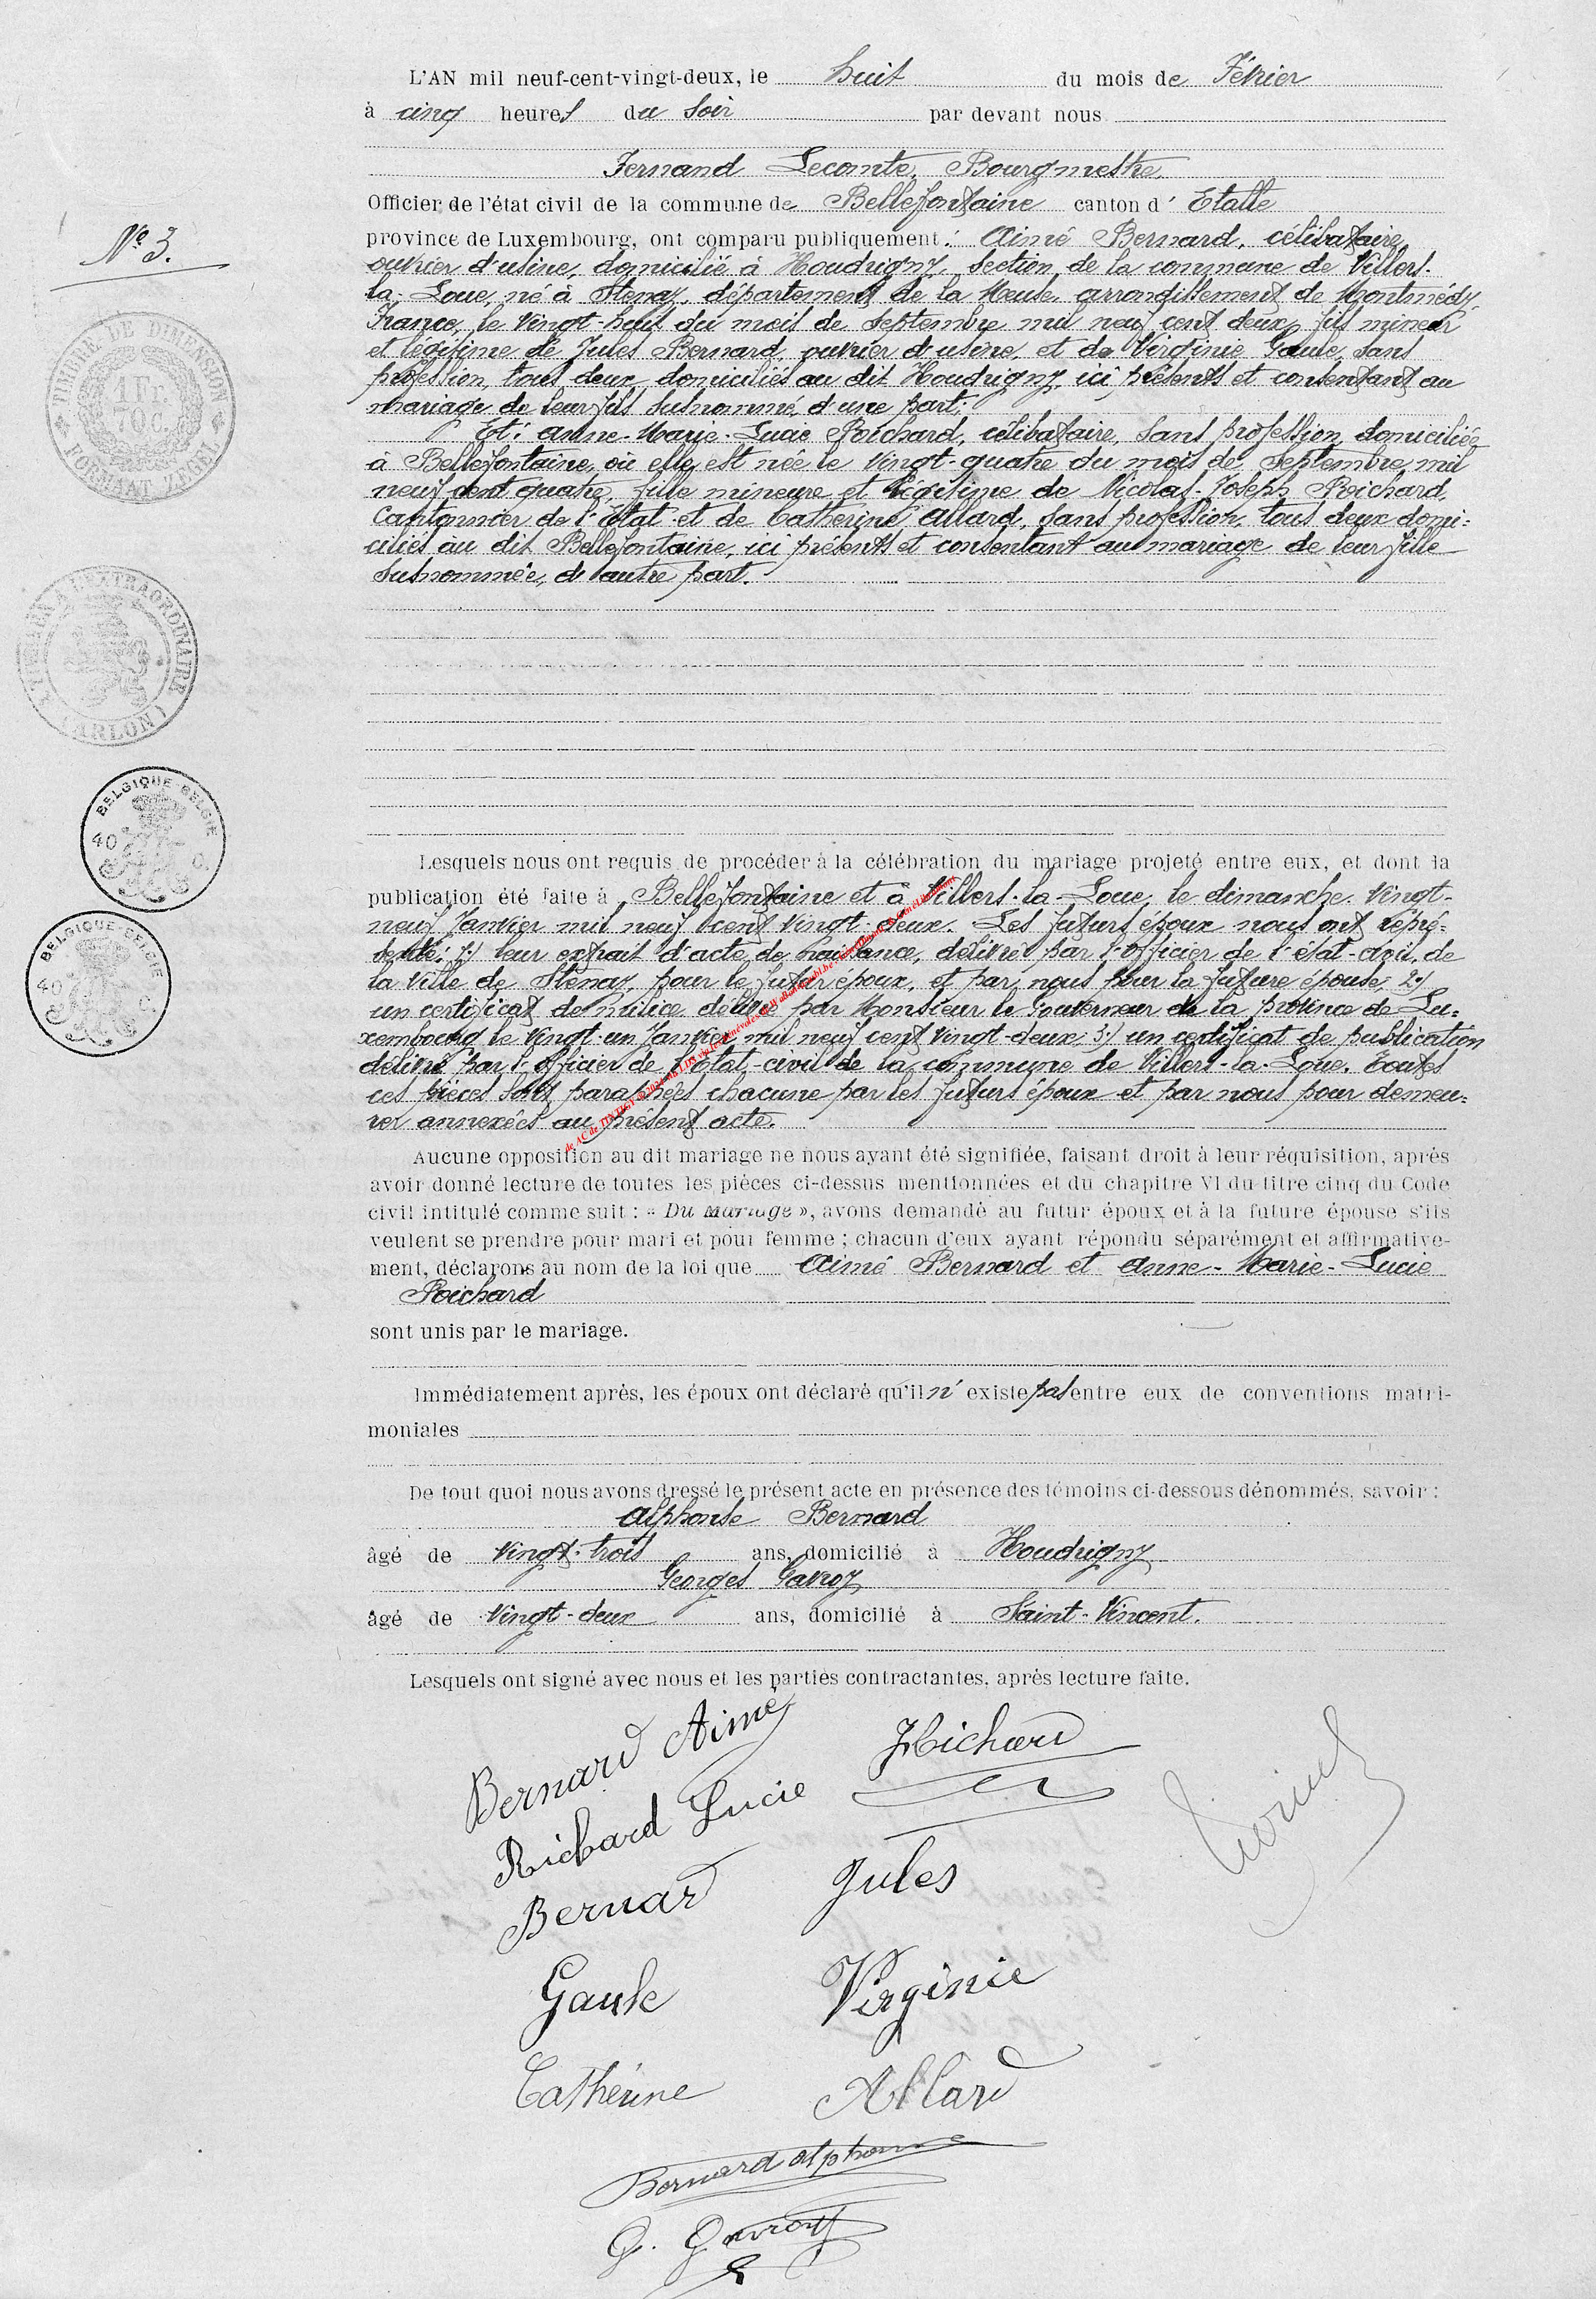 L'AN mil neuf-cent-vingt-deux, le huit du mois de Février
à cinq heures du soir par devant nous
Fernand Lecomte, Bourgmestre,
Officier de l'état civil de la commune de Bellefontaine canton d' Etalle
N° 3.
province de Luxembourg, ont comparu publiquement : Aimé Bernard, célibataire,
ouvrier d'usine, domicilié à Houdrigny, section de la commune de Villers-
la-Loue, né à Stenay, département de la Meuse, arrondissement de Montmédy,
France, le vingt-huit du mois de septembre mil neuf cent deux, fils mineur
et légitime de Jules Bernard, ouvrier d'usine, et de Virginie Gaule, sans
profession, tous deux domiciliés au dit Houdrigny, ici présents et consentant au
mariage de leur fils susnommé, d'une part;
Et : Anne-Marie-Lucie Richard, célibataire, sans profession, domiciliée
à Bellefontaine, où elle est née le vingt-quatre du mois de septembre mil
neuf cent quatre, fille mineure et légitime de Nicolas-Joseph Richard,
Cantonnier de l'Etat et de Catherine Allard, sans profession, tous deux domi=
ciliés au dit Bellefontaine, ici présents et consentant au mariage de leur fille
susnommée, d'autre part.
TIMBRE DE DIMENSION
1 Fr.
70 C.
FORMAAT ZEGEL
TIMBRE A L'EXTRAORDINAIRE
(ARLON)
BELGIQUE BELGIE
40 C.
BELGIQUE-BELGIE
40 C.
Lesquels nous ont requis de procéder à la célébration du mariage projeté entre eux, et dont la
publication été faite à Bellefontaine et à Villers-la-Loue, le dimanche vingt-
neuf Janvier mil neuf cent vingt-deux. Les futurs époux nous ont repré=
senté : 1.) leur extrait d'acte de naissance, délivré par l'officier de l'état-civil de
la ville de Stenay, pour le futur époux, et par nous pour la future épouse; 2.)
un certificat de milice délivré par Monsieur le Gouverneur de la province de Lu=
xembourg le vingt-un Janvier mil neuf cent vingt-deux; 3.) un certificat de publication
délivré par l'officier de l'Etat-civil de la commune de Villers-la-Loue. Toutes
ces pièces sont paraphées chacune par les futurs époux et par nous pour demeu=
rer annexées au présent acte.
de AC de TINTIGNY
Aucune opposition au dit mariage ne nous ayant été signifiée, faisant droit à leur réquisition, après
avoir donné lecture de toutes les pièces ci-dessus mentionnées et du chapitre VI du titre cinq du Code
civil intitulé comme suit : « Du Mariage », avons demandé au futur époux et à la future épouse s'ils
veulent se prendre pour mari et pour femme ; chacun d'eux ayant répondu séparément et affirmative-
ment, déclarons au nom de la loi que Aimé Bernard et Anne-Marie-Lucie
Richard
sont unis par le mariage.
Immédiatement après, les époux ont déclaré qu'il n'existe pas entre eux de conventions matri-
moniales
De tout quoi nous avons dressé le présent acte en présence des témoins ci-dessous dénommés, savoir :
Alphonse Bernard
âgé de vingt-trois ans, domicilié à Houdrigny
Georges Gavroy
âgé de vingt-deux ans, domicilié à Saint-Vincent.
Lesquels ont signé avec nous et les parties contractantes, après lecture faite.
Bernard Aimé
Richard Lucie
Bernard Jules
Gaule Virginie
Catherine Allard
Bernard Alphonse
G. Gavroy